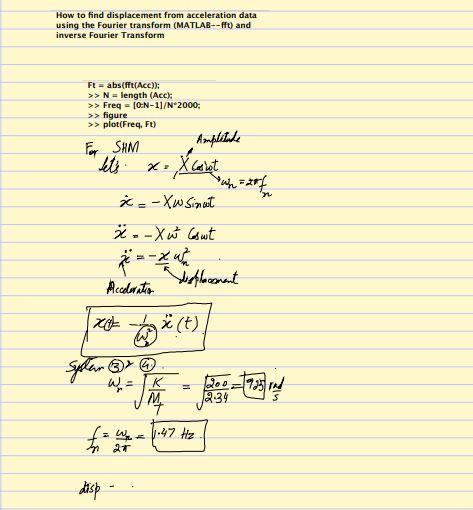 How to find displacement from acceleration data
using the Fourier transform (MATLAB--fft) and
inverse Fourier Transform
Ft = abs(fft(Acc));
>> N = length (Acc);
>> Freq = [0:N-1]/N*2000;
>> figure
>> plot(Freq, Ft)
For SHM
Amplitude
let's x = X Cosωt
ωn = 2πfn
ẋ = -Xω Sinωt
ẍ = -Xω² Cosωt
ẍ = -x ωn²
Acceleration
displacement
x(t) = -1/ωn² ẍ(t)
System ③ & ④
ωn = √(K/MT) = √(200/2.34) = 9.25 rad/s
fn = ωn/2π = 1.47 Hz
disp -